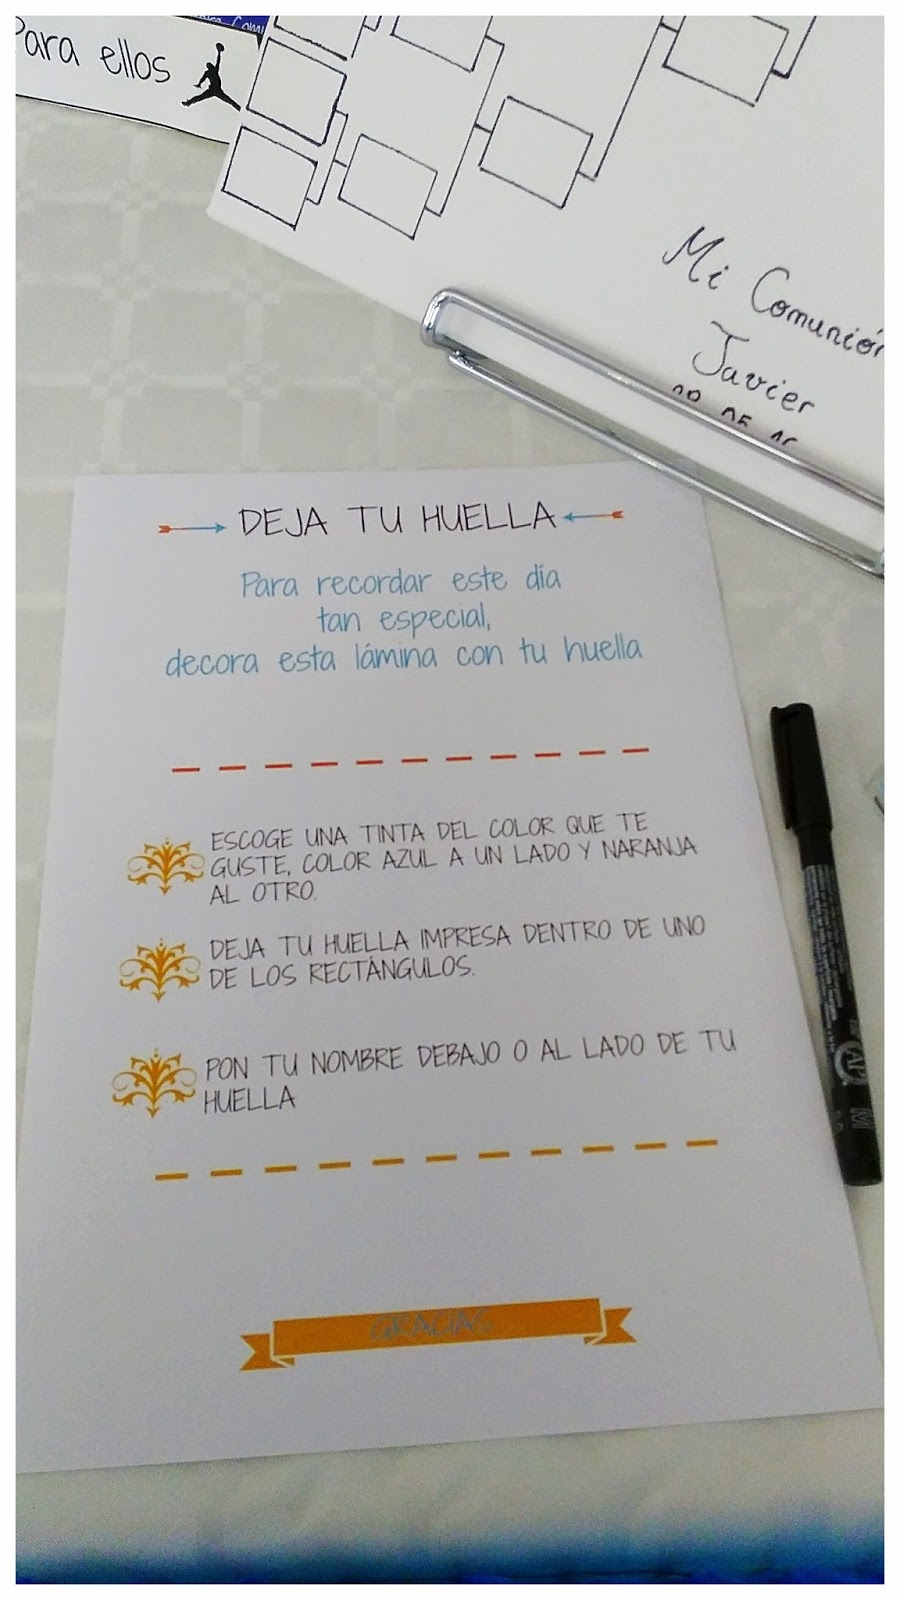 Para ellos
Mi Comunión
Javier
DEJA TU HUELLA
Para recordar este día
tan especial,
decora esta lámina con tu huella
ESCOGE UNA TINTA DEL COLOR QUE TE
GUSTE, COLOR AZUL A UN LADO Y NARANJA
AL OTRO.
DEJA TU HUELLA IMPRESA DENTRO DE UNO
DE LOS RECTÁNGULOS.
PON TU NOMBRE DEBAJO O AL LADO DE TU
HUELLA
GRACIAS